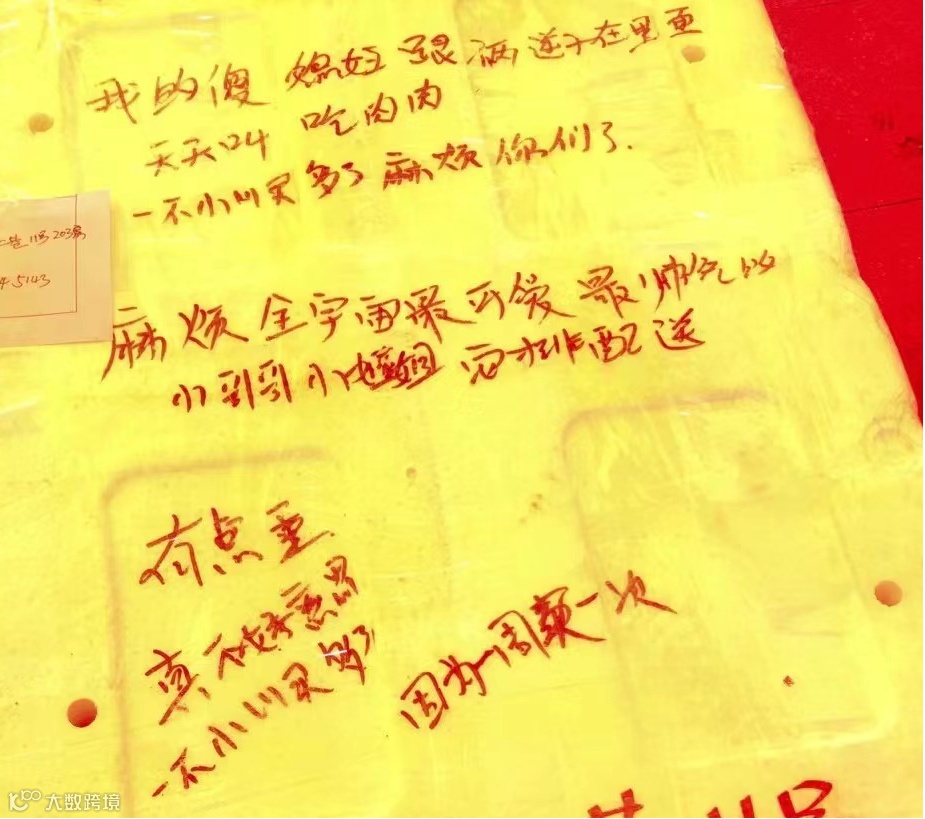 我的傻媳妇跟俩逆子在里面
天天叫吃肉肉
一不小心买多了麻烦你们了.
11号203房
5143
麻烦全宇宙最可爱最帅气的
小哥哥小姐姐安排配送
有点重
真不好意思
一不小心买多了
因为一周一次
大数跨境